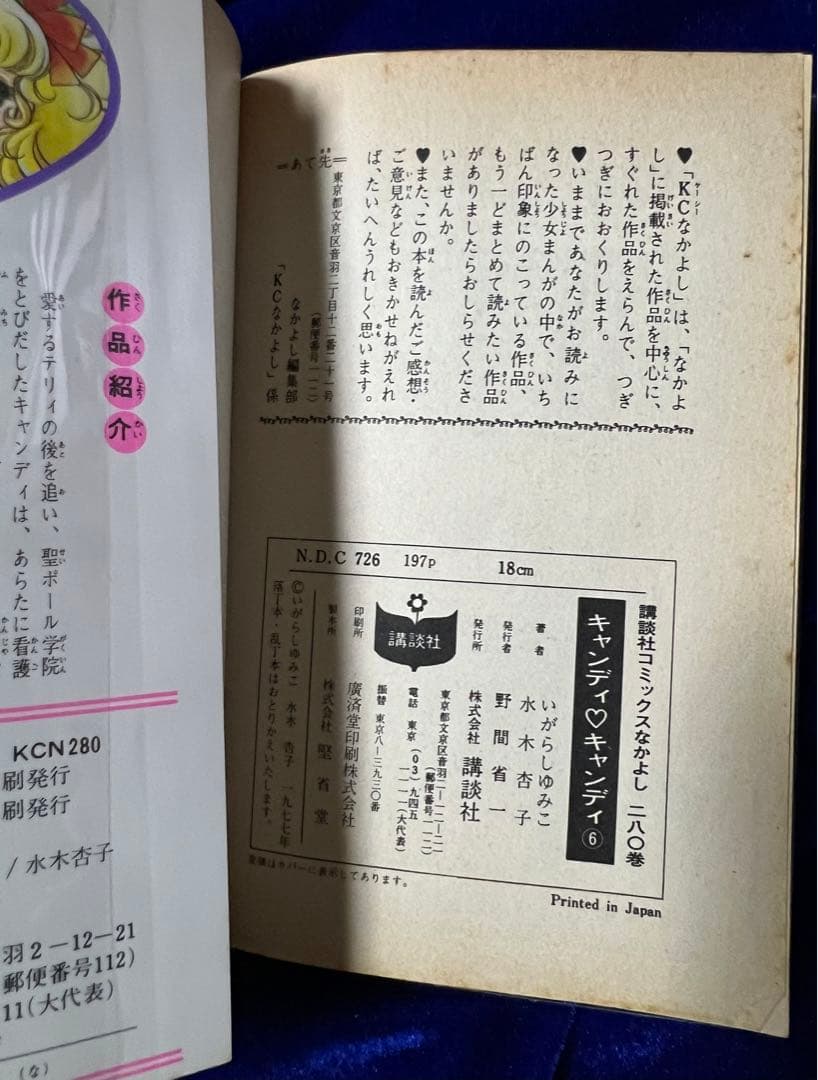 作品紹介
愛するテリィの後を追い、聖ポール学院
をとびだしたキャンディは、あらたに看護
KCN280
刷発行
刷発行
/水木杏子
羽2-12-21
郵便番号112)
11(大代表)
(な)
♥「KCなかよし」は、「なかよ
し」に掲載された作品を中心に、
すぐれた作品をえらんで、つぎ
つぎにおおくりします。
♥いままであなたがお読みに
なった少女まんがの中で、いち
ばん印象にのこっている作品、
もう一どまとめて読みたい作品
がありましたらおしらせくださ
いませんか。
♥また、この本を読んだご感想・
ご意見などもおきかせねがえれ
ば、たいへんうれしく思います。
=あて先=
東京都文京区音羽二丁目十二番二十一号
(郵便番号一一二)
なかよし編集部
「KCなかよし」係
N.D.C 726 197p 18cm
講談社コミックスなかよし 二八〇巻
キャンディ♡キャンディ⑥
著者 いがらしゆみこ
水木杏子
発行者 野間省一
発行所 株式会社 講談社
東京都文京区音羽二―一二―二一
(郵便番号一一二)
電話 東京(03)九四五
―一一一一(大代表)
振替 東京八―三九三〇番
講談社
印刷所 廣済堂印刷株式会社
製本所 株式会社 堅省堂
©いがらしゆみこ 水木杏子 一九七七年
落丁本・乱丁本はおとりかえいたします。
定価はカバーに表示してあります。
Printed in Japan